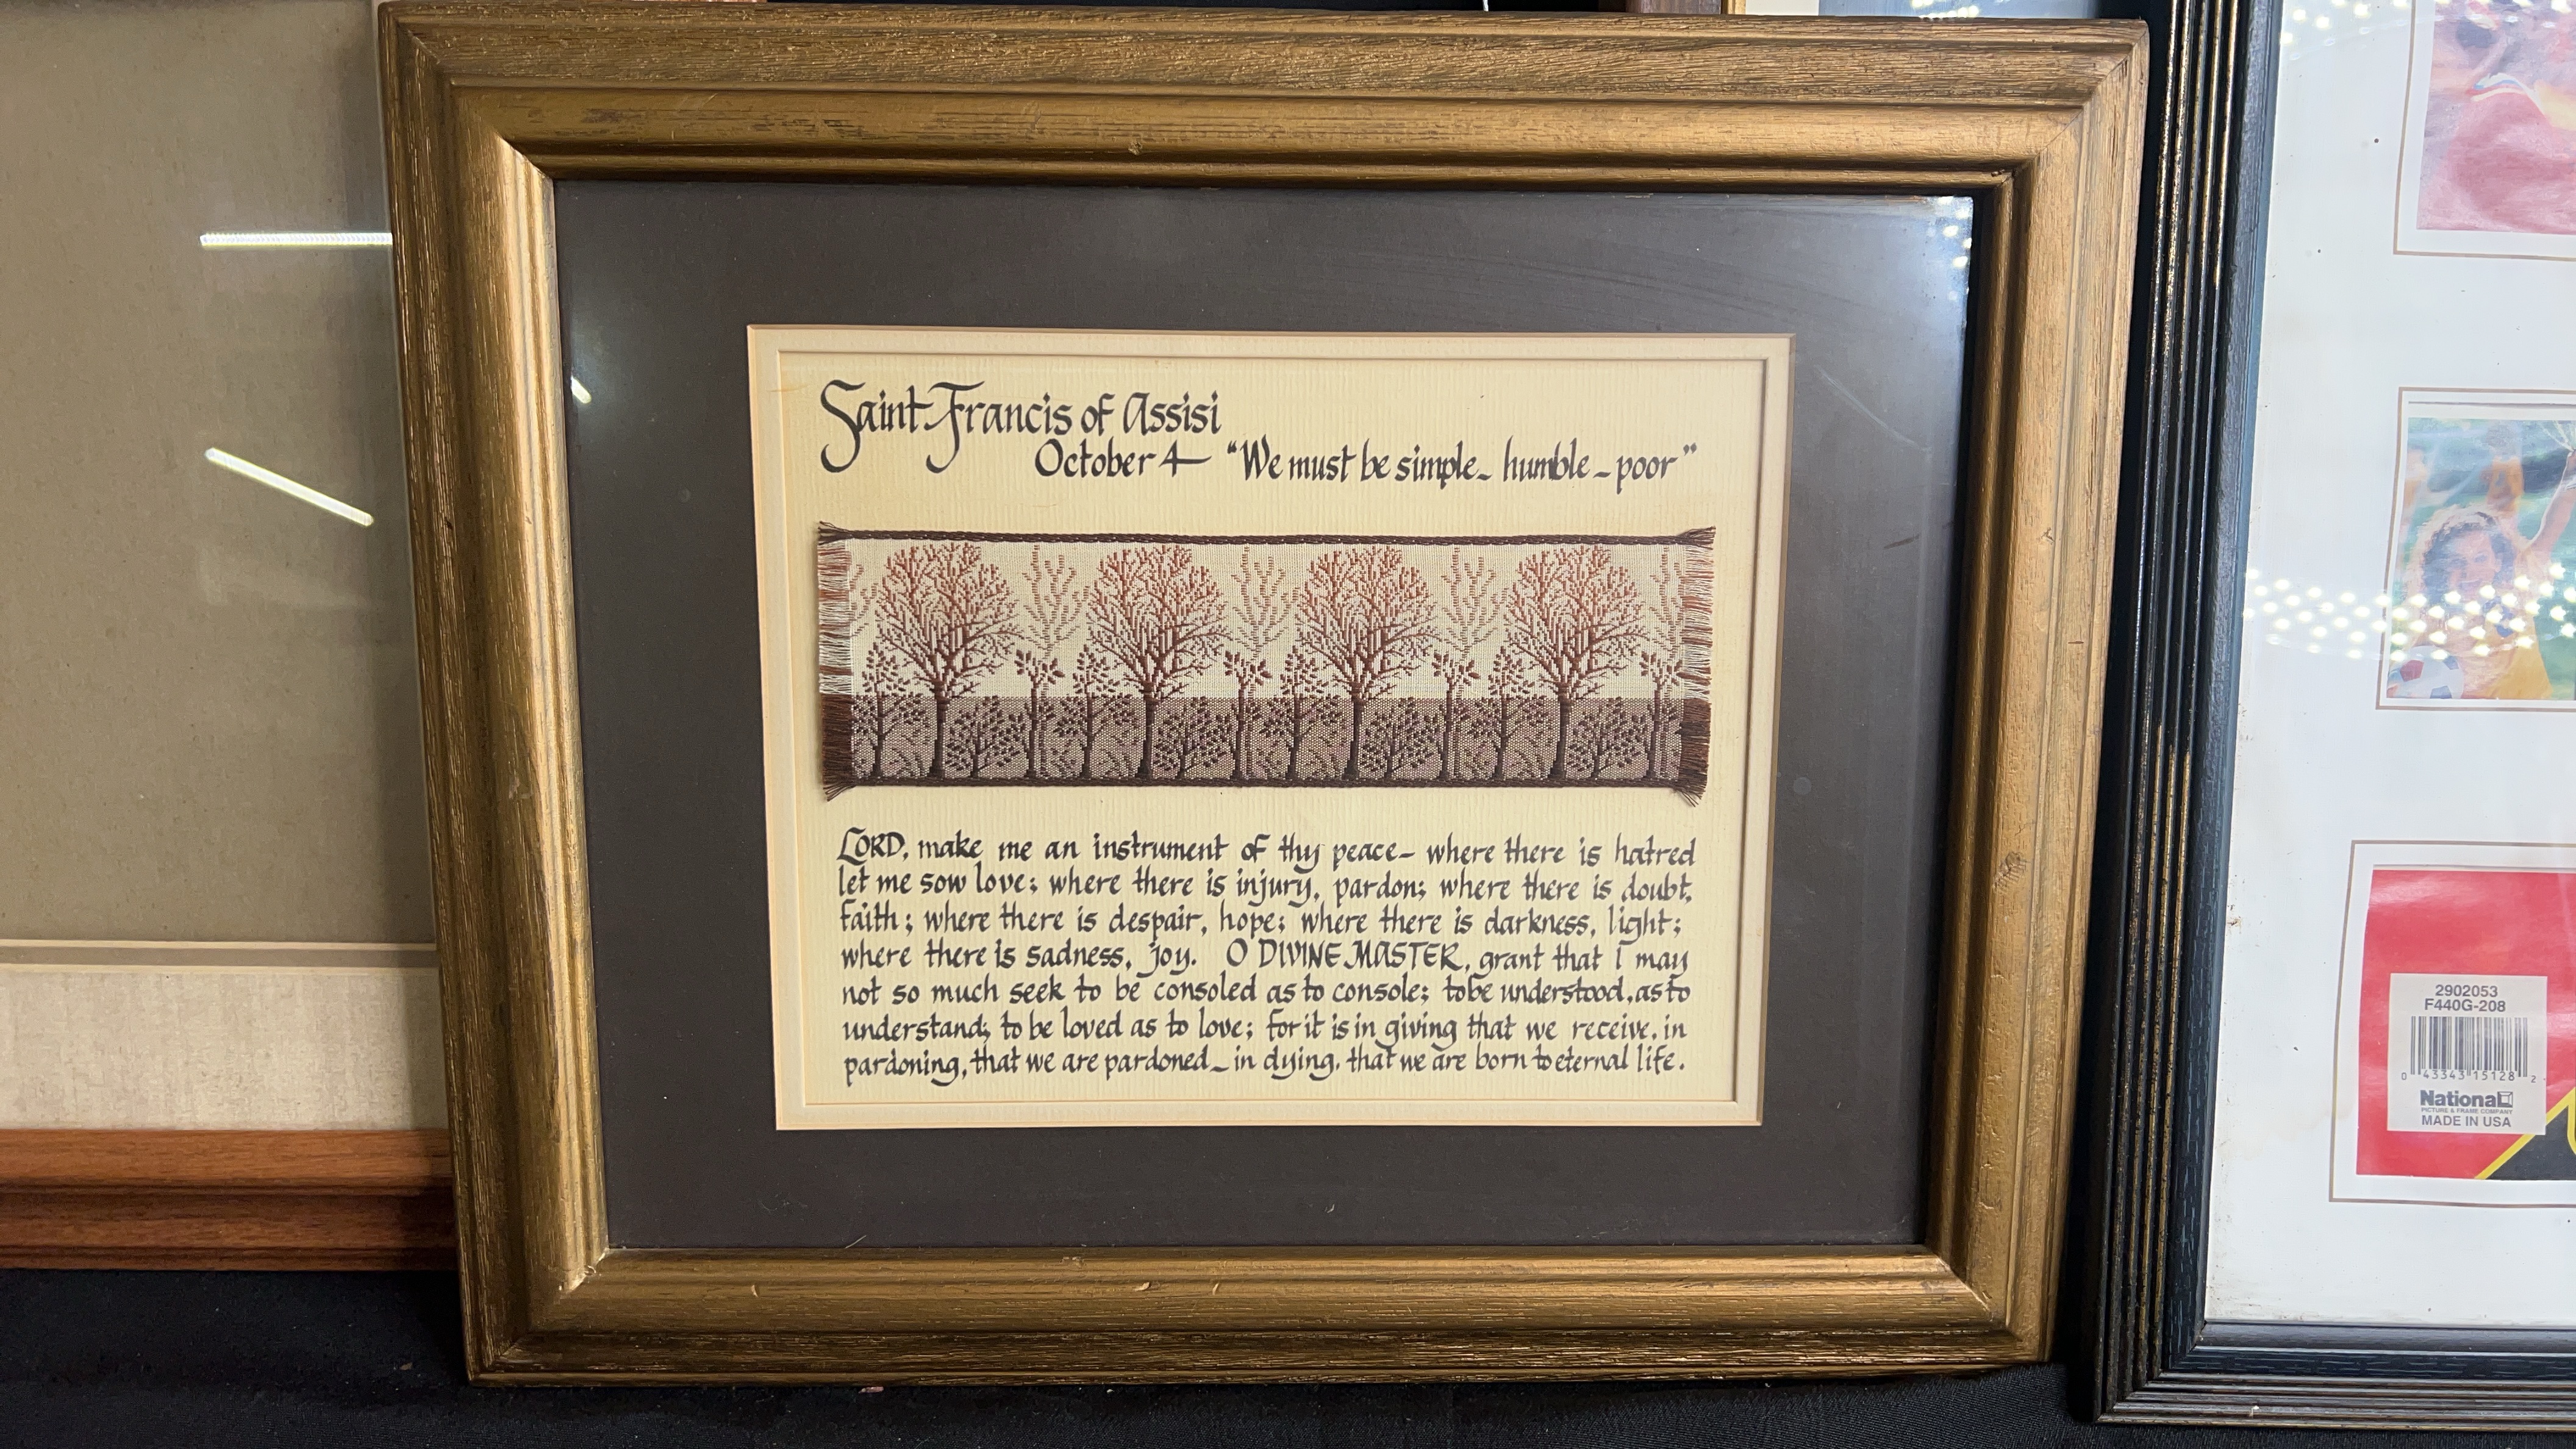 Saint Francis of Assisi
October 4 "We must be simple - humble - poor"
LORD, make me an instrument of thy peace - where there is hatred
let me sow love; where there is injury, pardon; where there is doubt,
faith; where there is despair, hope; where there is darkness, light;
where there is sadness, joy. O DIVINE MASTER, grant that I may
not so much seek to be consoled as to console; to be understood, as to
understand; to be loved as to love; for it is in giving that we receive, in
pardoning, that we are pardoned - in dying, that we are born to eternal life.
2902053
F440G-208
0 43343 15128 2
National
PICTURE & FRAME COMPANY
MADE IN USA